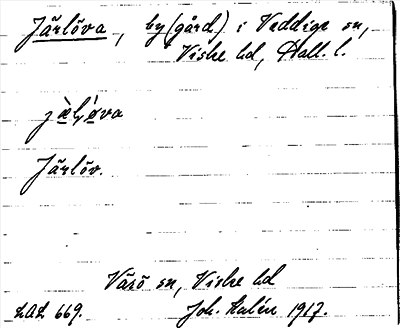 Järlöva, by (gård) i Veddige sn,
Viske hd, Hall. l.
jæ̀l,øva
Järlöv.
Värö sn, Viske hd
LAL 669. Joh. Kalén 1917.